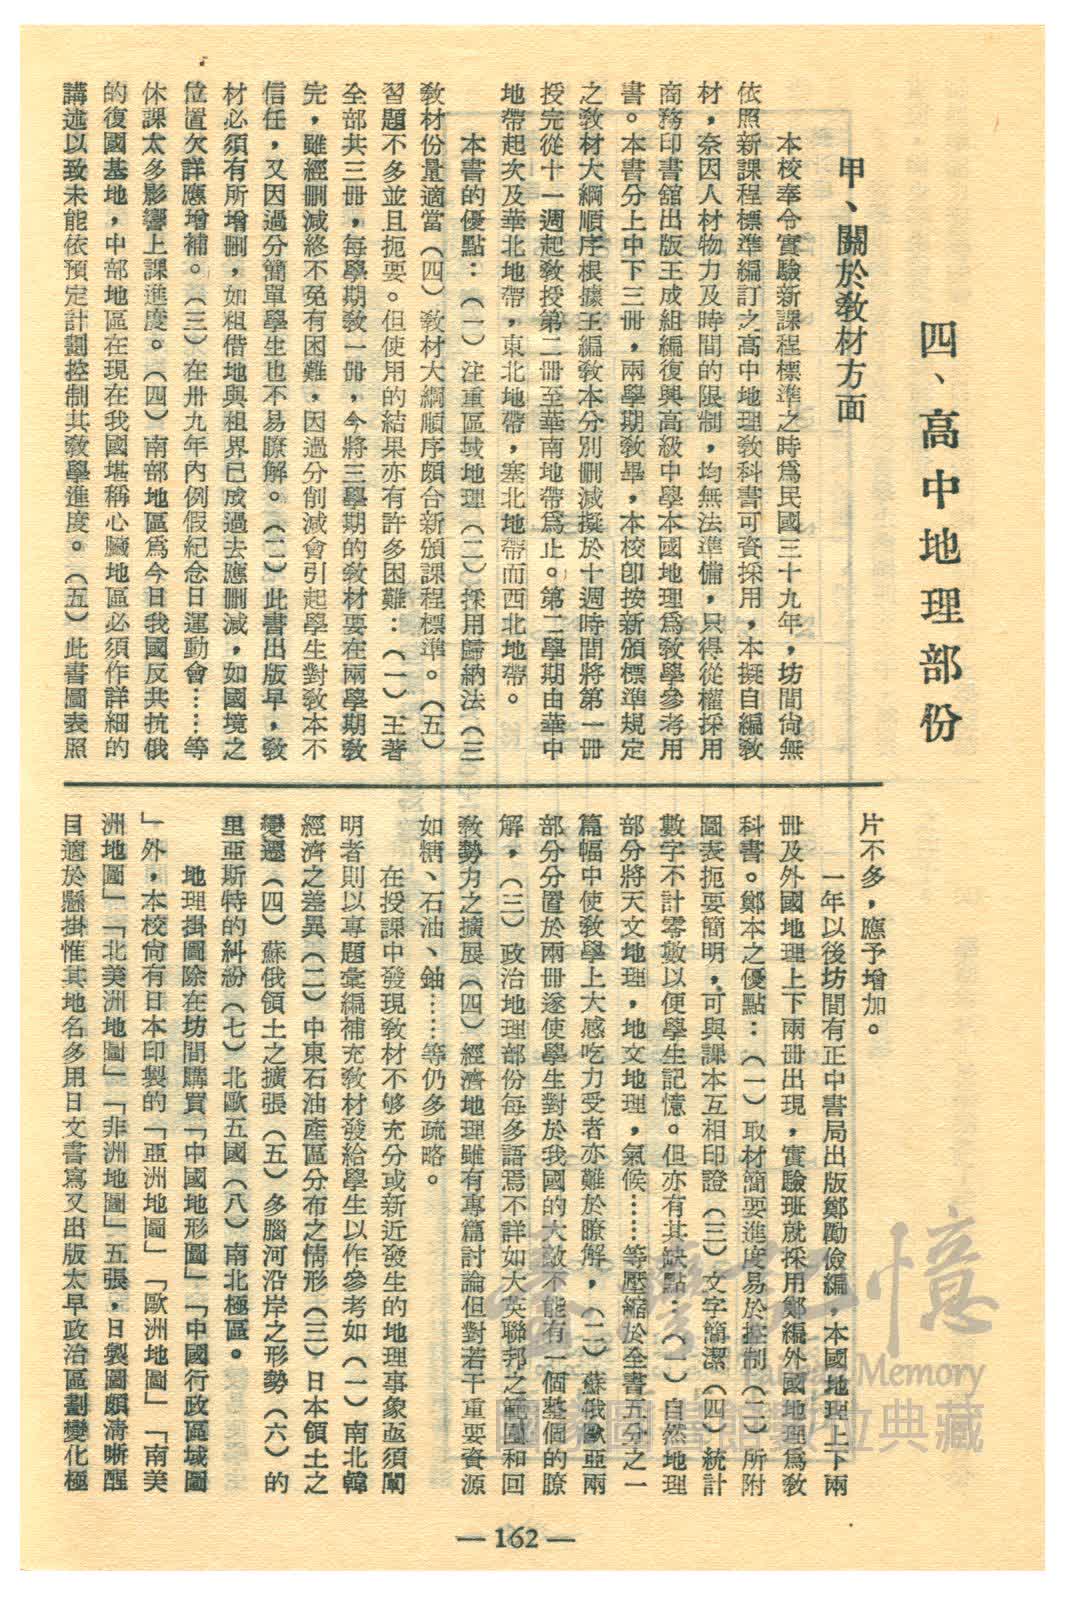 四、高中地理部份
甲、關於敎材方面
本校奉令實驗新課程標準之時爲民國三十九年，坊間尙無
依照新課程標準編訂之高中地理敎科書可資採用，本擬自編敎
材，奈因人材物力及時間的限制，均無法準備，只得從權採用
商務印書舘出版王成組編復興高級中學本國地理爲敎學參考用
書。本書分上中下三冊，兩學期敎畢，本校卽按新頒標準規定
之敎材大綱順序根據王編敎本分別刪減擬於十週時間將第一冊
授完從十一週起敎授第二冊至華南地帶爲止。第二學期由華中
地帶起次及華北地帶，東北地帶，塞北地帶而西北地帶。
本書的優點：（一）注重區域地理（二）採用歸納法（三
敎材份量適當（四）敎材大綱順序頗合新頒課程標準。（五）
習題不多並且扼要。但使用的結果亦有許多困難：（一）王著
全部共三冊，每學期敎一冊，今將三學期的敎材要在兩學期敎
完，雖經刪減終不免有困難，因過分削減會引起學生對敎本不
信任，又因過分簡單學生也不易瞭解。（二）此書出版早，敎
材必須有所增刪，如租借地與租界已成過去應刪減，如國境之
位置欠詳應增補。（三）在卅九年內例假紀念日運動會……等
休課太多影響上課進度。（四）南部地區爲今日我國反共抗俄
的復國基地，中部地區在現在我國堪稱心臟地區必須作詳細的
講述以致未能依預定計劃控制其敎學進度。（五）此書圖表照
片不多，應予增加。
一年以後坊間有正中書局出版鄭勵儉編，本國地理上下兩
冊及外國地理上下兩冊出現，實驗班就採用鄭編外國地理爲敎
科書。鄭本之優點：（一）取材簡要進度易於控制（二）所附
圖表扼要簡明，可與課本互相印證（三）文字簡潔（四）統計
數字不計零數以便學生記憶。但亦有其缺點：（一）自然地理
部分將天文地理，地文地理，氣候……等壓縮於全書五分之一
篇幅中使敎學上大感吃力受者亦難於瞭解，（二）蘇俄歐亞兩
部分分置於兩冊遂使學生對於我國的大敵不能有一個整個的瞭
解，（三）政治地理部份每多語焉不詳如大英聯邦之範圍和回
敎勢力之擴展（四）經濟地理雖有專篇討論但對若干重要資源
如糖、石油、鈾……等仍多疏略。
在授課中發現敎材不够充分或新近發生的地理事象亟須闡
明者則以專題彙編補充敎材發給學生以作參考如（一）南北韓
經濟之差異（二）中東石油產區分布之情形（三）日本領土之
變遷（四）蘇俄領土之擴張（五）多腦河沿岸之形勢（六）的
里亞斯特的糾紛（七）北歐五國（八）南北極區。
地理掛圖除在坊間購買「中國地形圖」「中國行政區域圖
」外，本校尙有日本印製的「亞洲地圖」「歐洲地圖」「南美
洲地圖」「北美洲地圖」「非洲地圖」五張，日製圖頗清晰醒
目適於懸掛惟其地名多用日文書寫又出版太早政治區劃變化極
— 162 —
臺灣記憶
Taiwan Memory
國家圖書館數位典藏